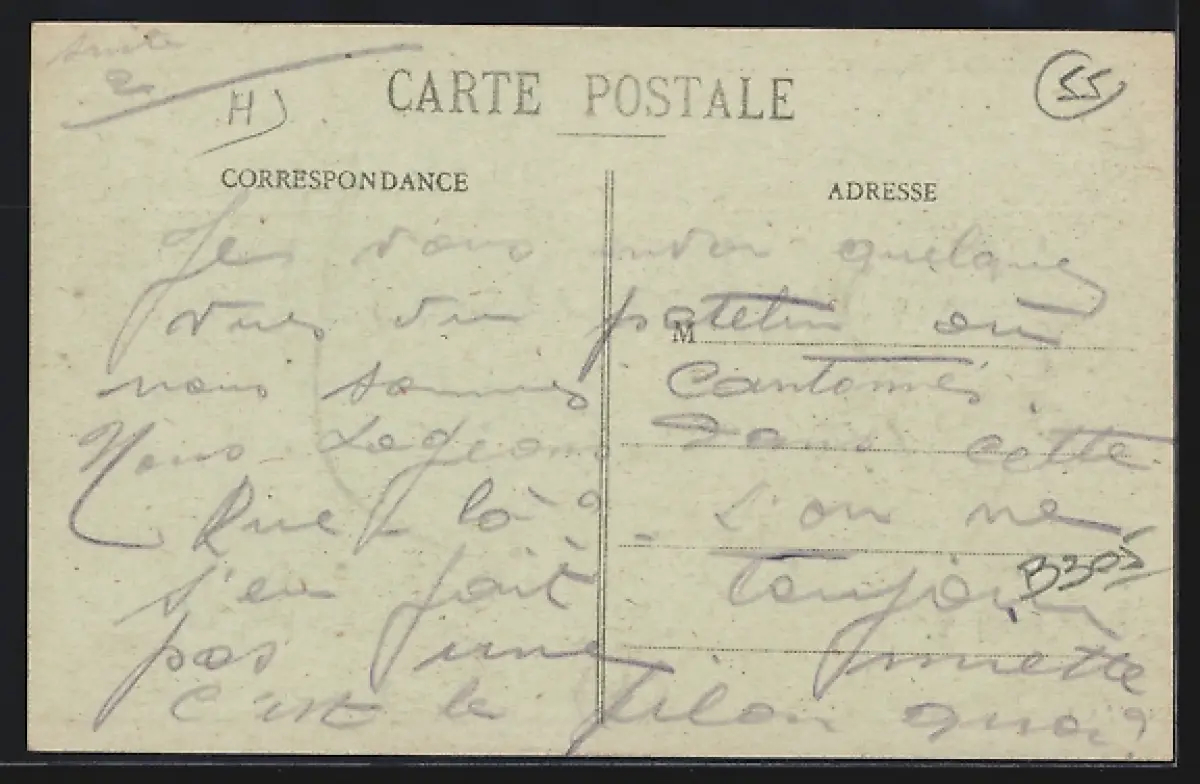 suite
2
H
CARTE POSTALE
55
CORRESPONDANCE
ADRESSE
Je vous envoi quelques
vues du patelin où
M
nous sommes cantonnés.
Nous Logeons Dans cette
Rue - là. L'on ne
B305
s'en fait toujours
pas une miette
c'est le filon quoi?